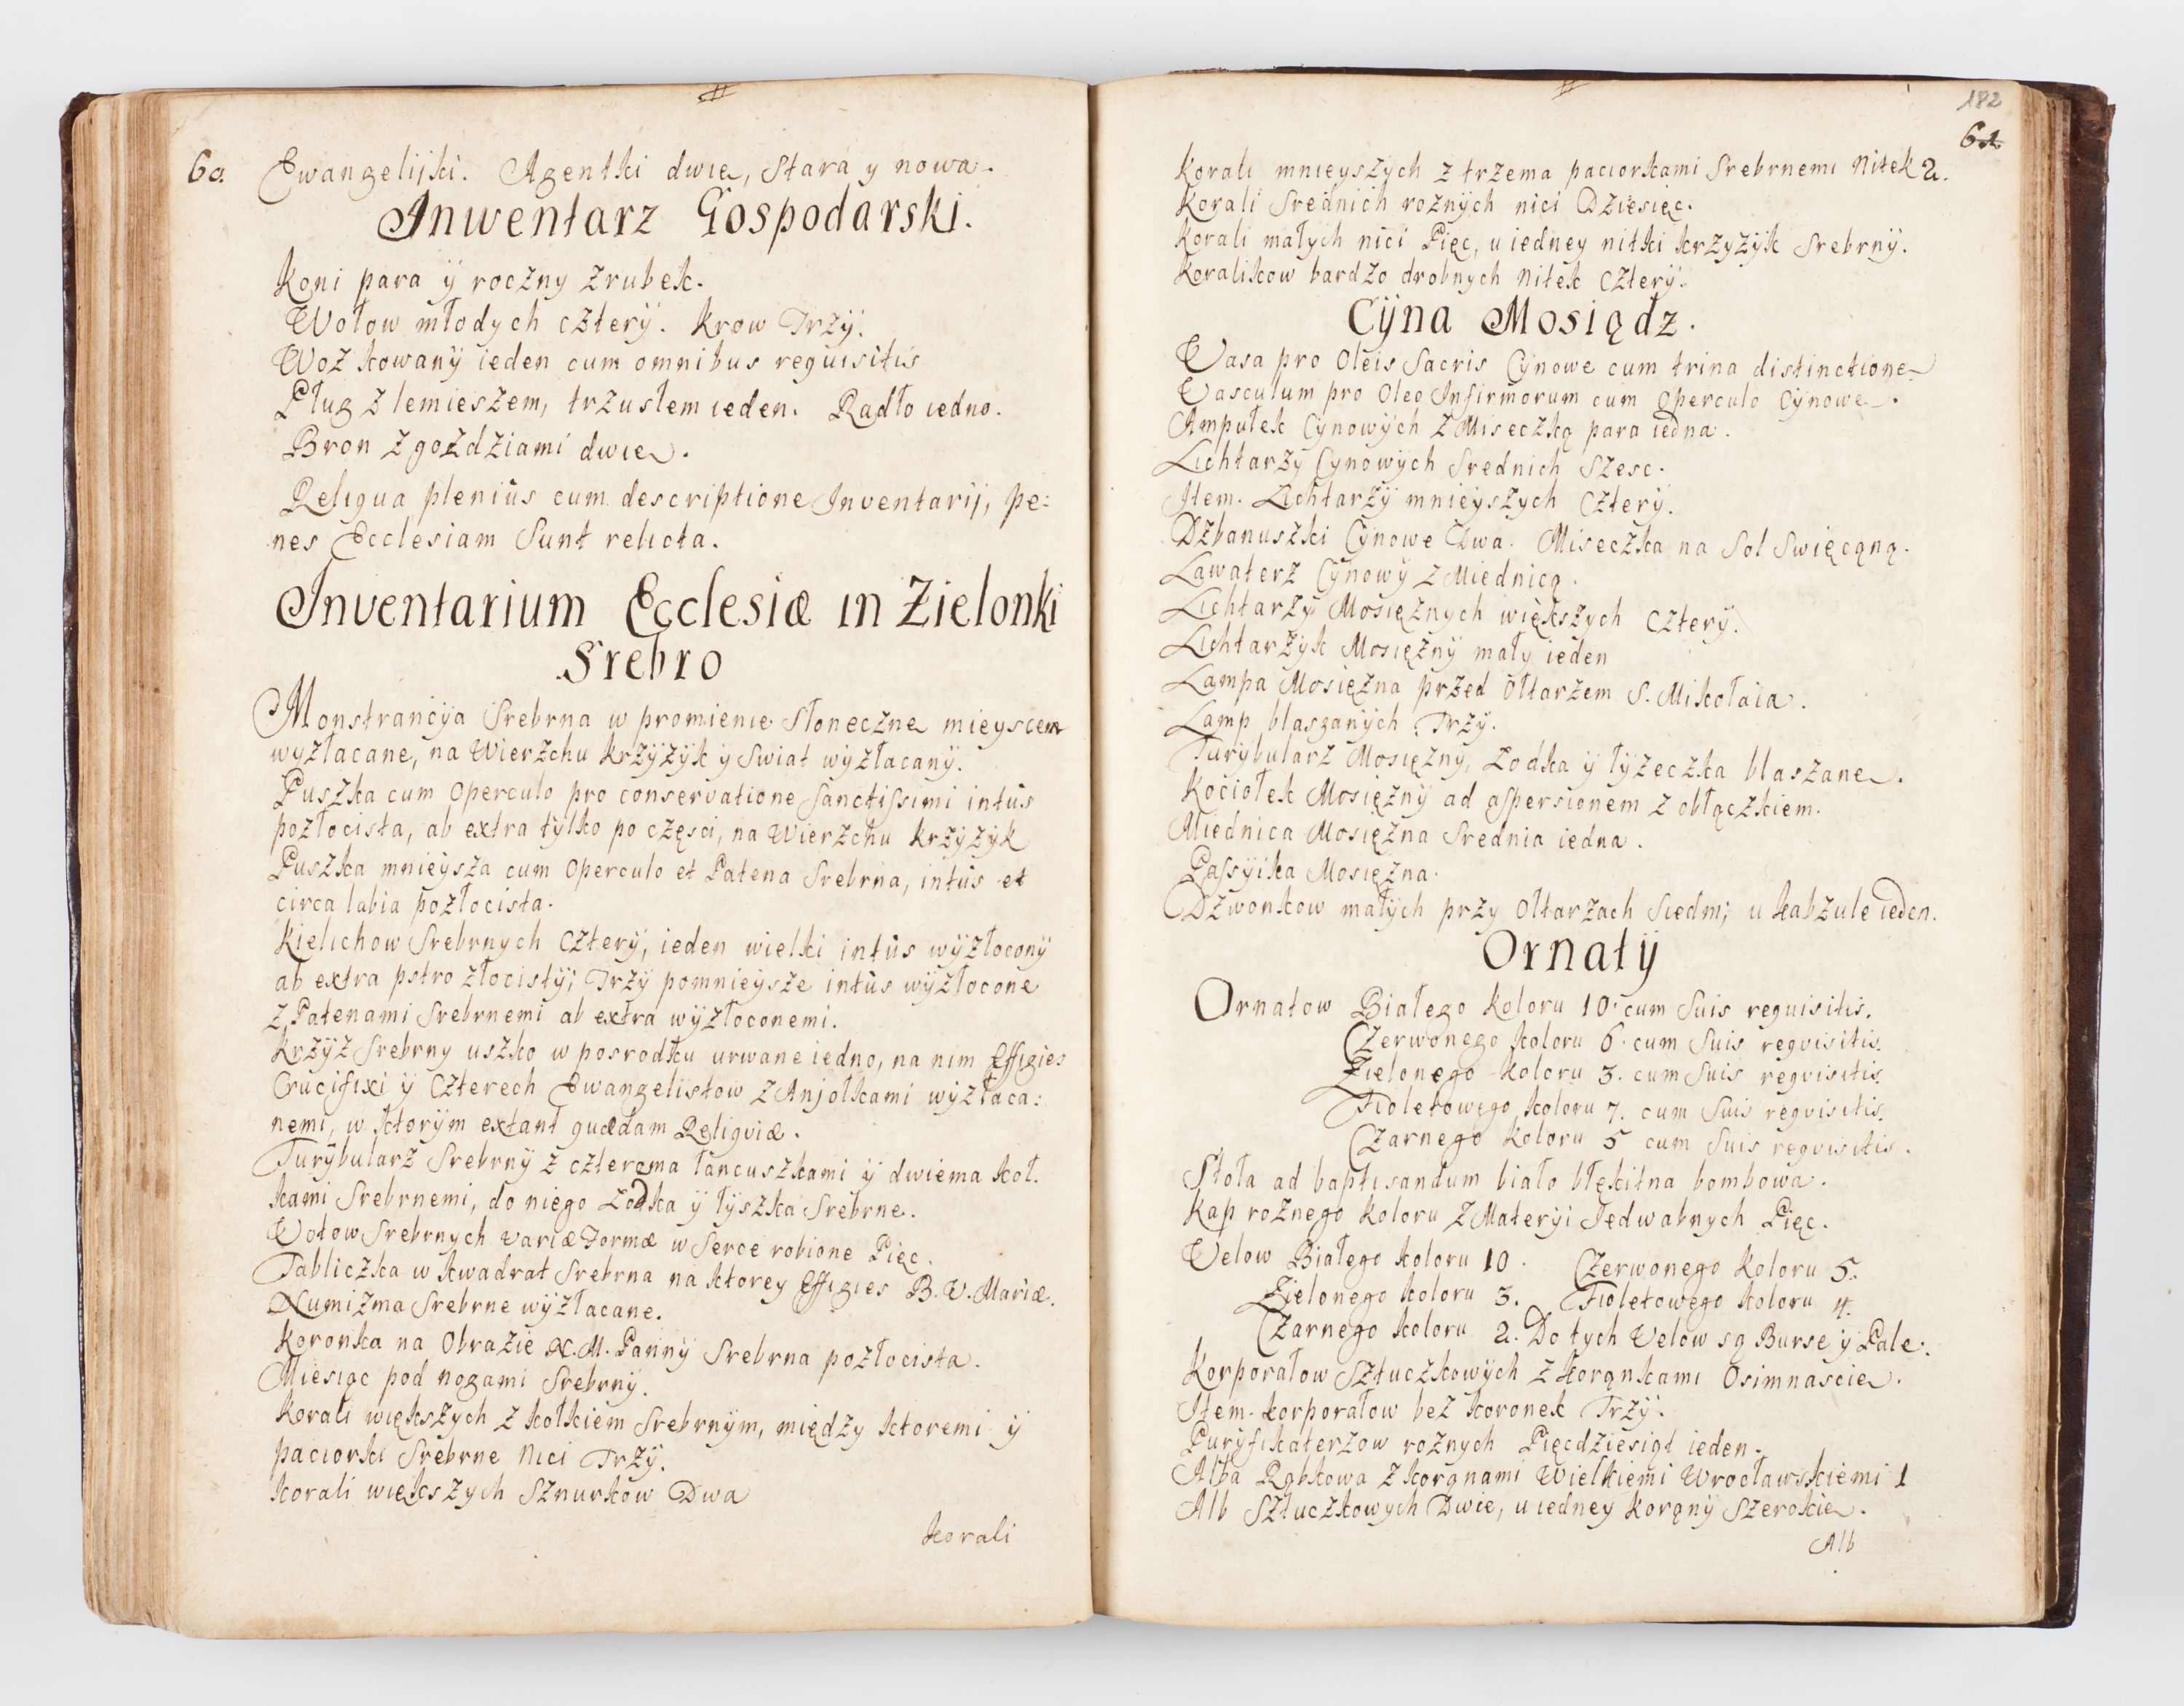 60. Ewangelijki. Agentki dwie, Stara y nowa.
Inwentarz Gospodarski.
Koni para ÿ roczny zrubek.
Wołow młodych czterÿ. Krow Trzÿ.
Woz kowanÿ ieden cum omnibus requisitis
Pług z lemieszem, trzusłem ieden. Radło iedno.
Bron z gozdziami dwie.
Reliqua pleniùs cum descriptione Inventarij, pe:
nes Ecclesiam Sunt relicta.
Inventarium Ecclesiæ in Zielonki
Srebro
Monstrancÿa Srebrna w promienie Słoneczne mieyscem
wyzłacane, na Wierzchu krzÿzÿk ÿ Swiat wÿzłacanÿ.
Puszka cum Operculo pro conservatione Sanctissimi intùs
pozłocista, ab extra tÿlko po częsci, na Wierzchu krzÿzÿk
Puszka mnieÿsza cum Operculo et Patena Srebrna, intùs et
circa labia pozłocista.
Kielichow Srebrnych czterÿ, ieden wielki intùs wÿzłoconÿ
ab extra pstro złocistÿ; Trzÿ pomnieÿsze intùs wÿzłocone
z Patenami Srebrnemi ab extra wÿzłoconemi.
Krzÿz Srebrny uszko w posrodku urwane iedno, na nim Effigies
Crucifixi ÿ Czterech Ewangelistow z Anjołkami wÿzłaca:
nemi, w ktorÿm extant quædam Reliquiæ.
Turÿbularz Srebrnÿ z czterema łancuszkami ÿ dwiema koł.
kami Srebrnemi, do niego Łodka ÿ łyszka Srebrne.
Votow Srebrnych variæ Formæ w Serce robione Pięc.
Tabliczka w kwadrat Srebrna na ktorey Effigies B. V. Mariæ.
Numizma Srebrne wÿzłacane.
Koronka na Obrazie N. M. Pannÿ Srebrna pozłocista.
Miesiąc pod nogami Srebrnÿ.
Korali większych z kołkiem Srebrnÿm, między ktoremi ÿ
paciorki Srebrne Nici Trzÿ.
Korali większych Sznurkow Dwa
Korali
182
61.
Korali mnieyszÿch z trzema paciorkami Srebrnemi Nitek 2.
Korali Srednich roznÿch nici Dziesięc.
Korali małych nici Pięc, u iedney nitki krzyzÿk Srebrnÿ.
Koralikow bardzo drobnych Nitek czterÿ.
Cÿna Mosiądz.
Vasa pro Oleis Sacris Cÿnowe cum trina distinctione
Vasculum pro Oleo Infirmorum cum Operculo Cÿnowe.
Ampułek Cÿnowÿch z Miseczką para iedna.
Lichtarzÿ Cynowÿch Srednich Szesc.
Item. Lichtarzÿ mnieÿszych Czterÿ.
Dzbanuszki Cÿnowe Dwa. Miseczka na Sol Swięcąną.
Lawaterz Cÿnowÿ z Miednicą.
Lichtarzÿ Mosięznych większych Czterÿ.
Lichtarzÿk Mosięznÿ małÿ ieden
Lampa Mosięzna przed Ołtarzem S. Mikołaia.
Lamp blaszanÿch Trzÿ.
Turÿbularz Mosięznÿ, Łodka ÿ łÿzeczka blaszane.
Kociołek Mosięznÿ ad aspersionem z obłączkiem.
Miednica Mosięzna Srednia iedna.
Passÿika Mosięzna.
Dzwonkow małÿch przy Ołtarzach Siedm; u kabzule ieden.
Ornatÿ
Ornatow Białego Koloru 10. cum Suis requisitis.
Czerwonego koloru 6. cum Suis requisitis.
Zielonego koloru 3. cum Suis requisitis.
Fioletowego koloru 7. cum Suis requisitis.
Czarnego koloru 5 cum Suis requisitis.
Stoła ad baptisandum biało błękitna bombowa.
Kap roznego koloru z Materÿi Jedwabnych Pięc.
Velow Białego koloru 10. Czerwonego Koloru 5.
Zielonego koloru 3. Fioletowego koloru 4.
Czarnego koloru 2. Do tych Velow są Burse ÿ Pale.
Korporałow Sztuczkowÿch z korąnkami Osimnascie.
Item. korporałow bez koronek Trzÿ.
Purÿfikaterzow roznych Pięcdziesiąt ieden.
Alba Rąbkowa z korąnami Wielkiemi Wrocławskiemi 1
Alb Sztuczkowych Dwie, u iedney korąnÿ Szerokie.
Alb